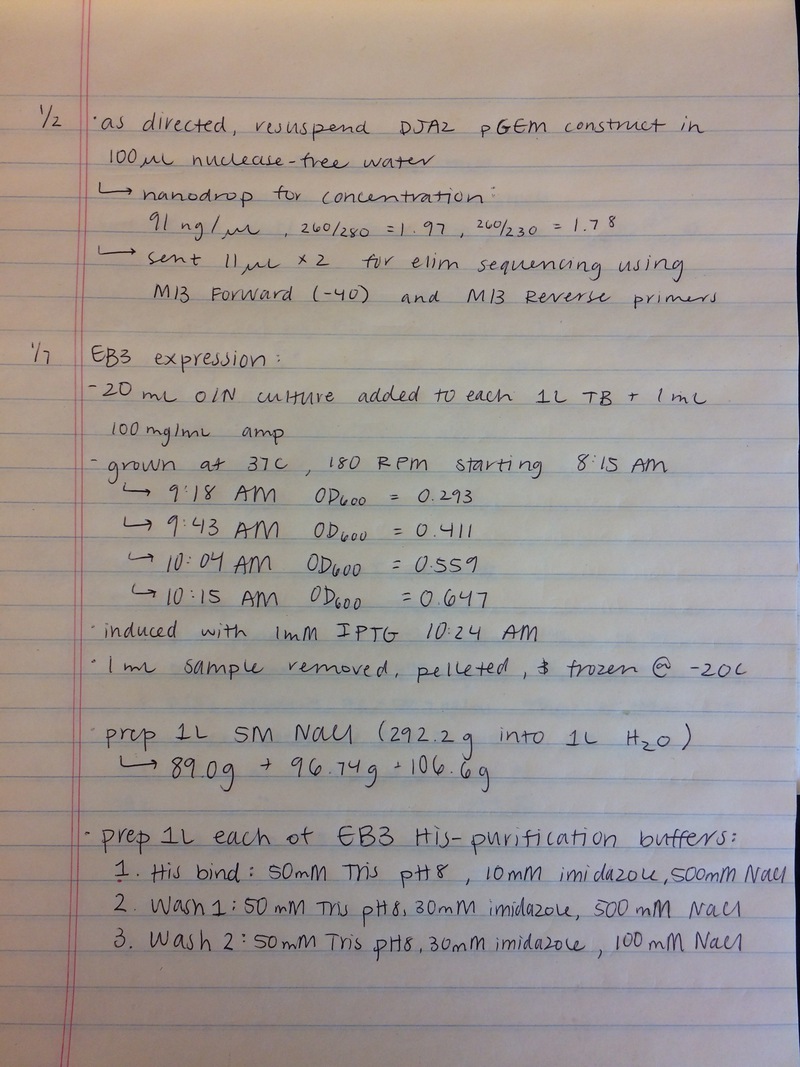 1/2 · as directed, resuspend DJA2 pGEM construct in
100 µL nuclease-free water
↳ nanodrop for concentration:
91 ng/µL, 260/280 = 1.97, 260/230 = 1.78
↳ sent 11 µL x 2 for elim sequencing using
M13 Forward (-40) and M13 Reverse primers
1/7 EB3 expression:
- 20 mL O/N culture added to each 1L TB + 1 mL
100 mg/mL amp
- grown at 37C, 180 RPM starting 8:15 AM
↳ 9:18 AM OD600 = 0.293
↳ 9:43 AM OD600 = 0.411
↳ 10:04 AM OD600 = 0.559
↳ 10:15 AM OD600 = 0.647
· induced with 1mM IPTG 10:24 AM
· 1 mL sample removed, pelleted, & frozen @ -20C
· prep 1L 5M NaCl (292.2g into 1L H2O)
↳ 89.0g + 96.74g + 106.6g
· prep 1L each of EB3 His-purification buffers:
1. His bind: 50mM Tris pH8, 10mM imidazole, 500mM NaCl
2. Wash 1: 50 mM Tris pH8, 30mM imidazole, 500 mM NaCl
3. Wash 2: 50mM Tris pH8, 30mM imidazole, 100mM NaCl